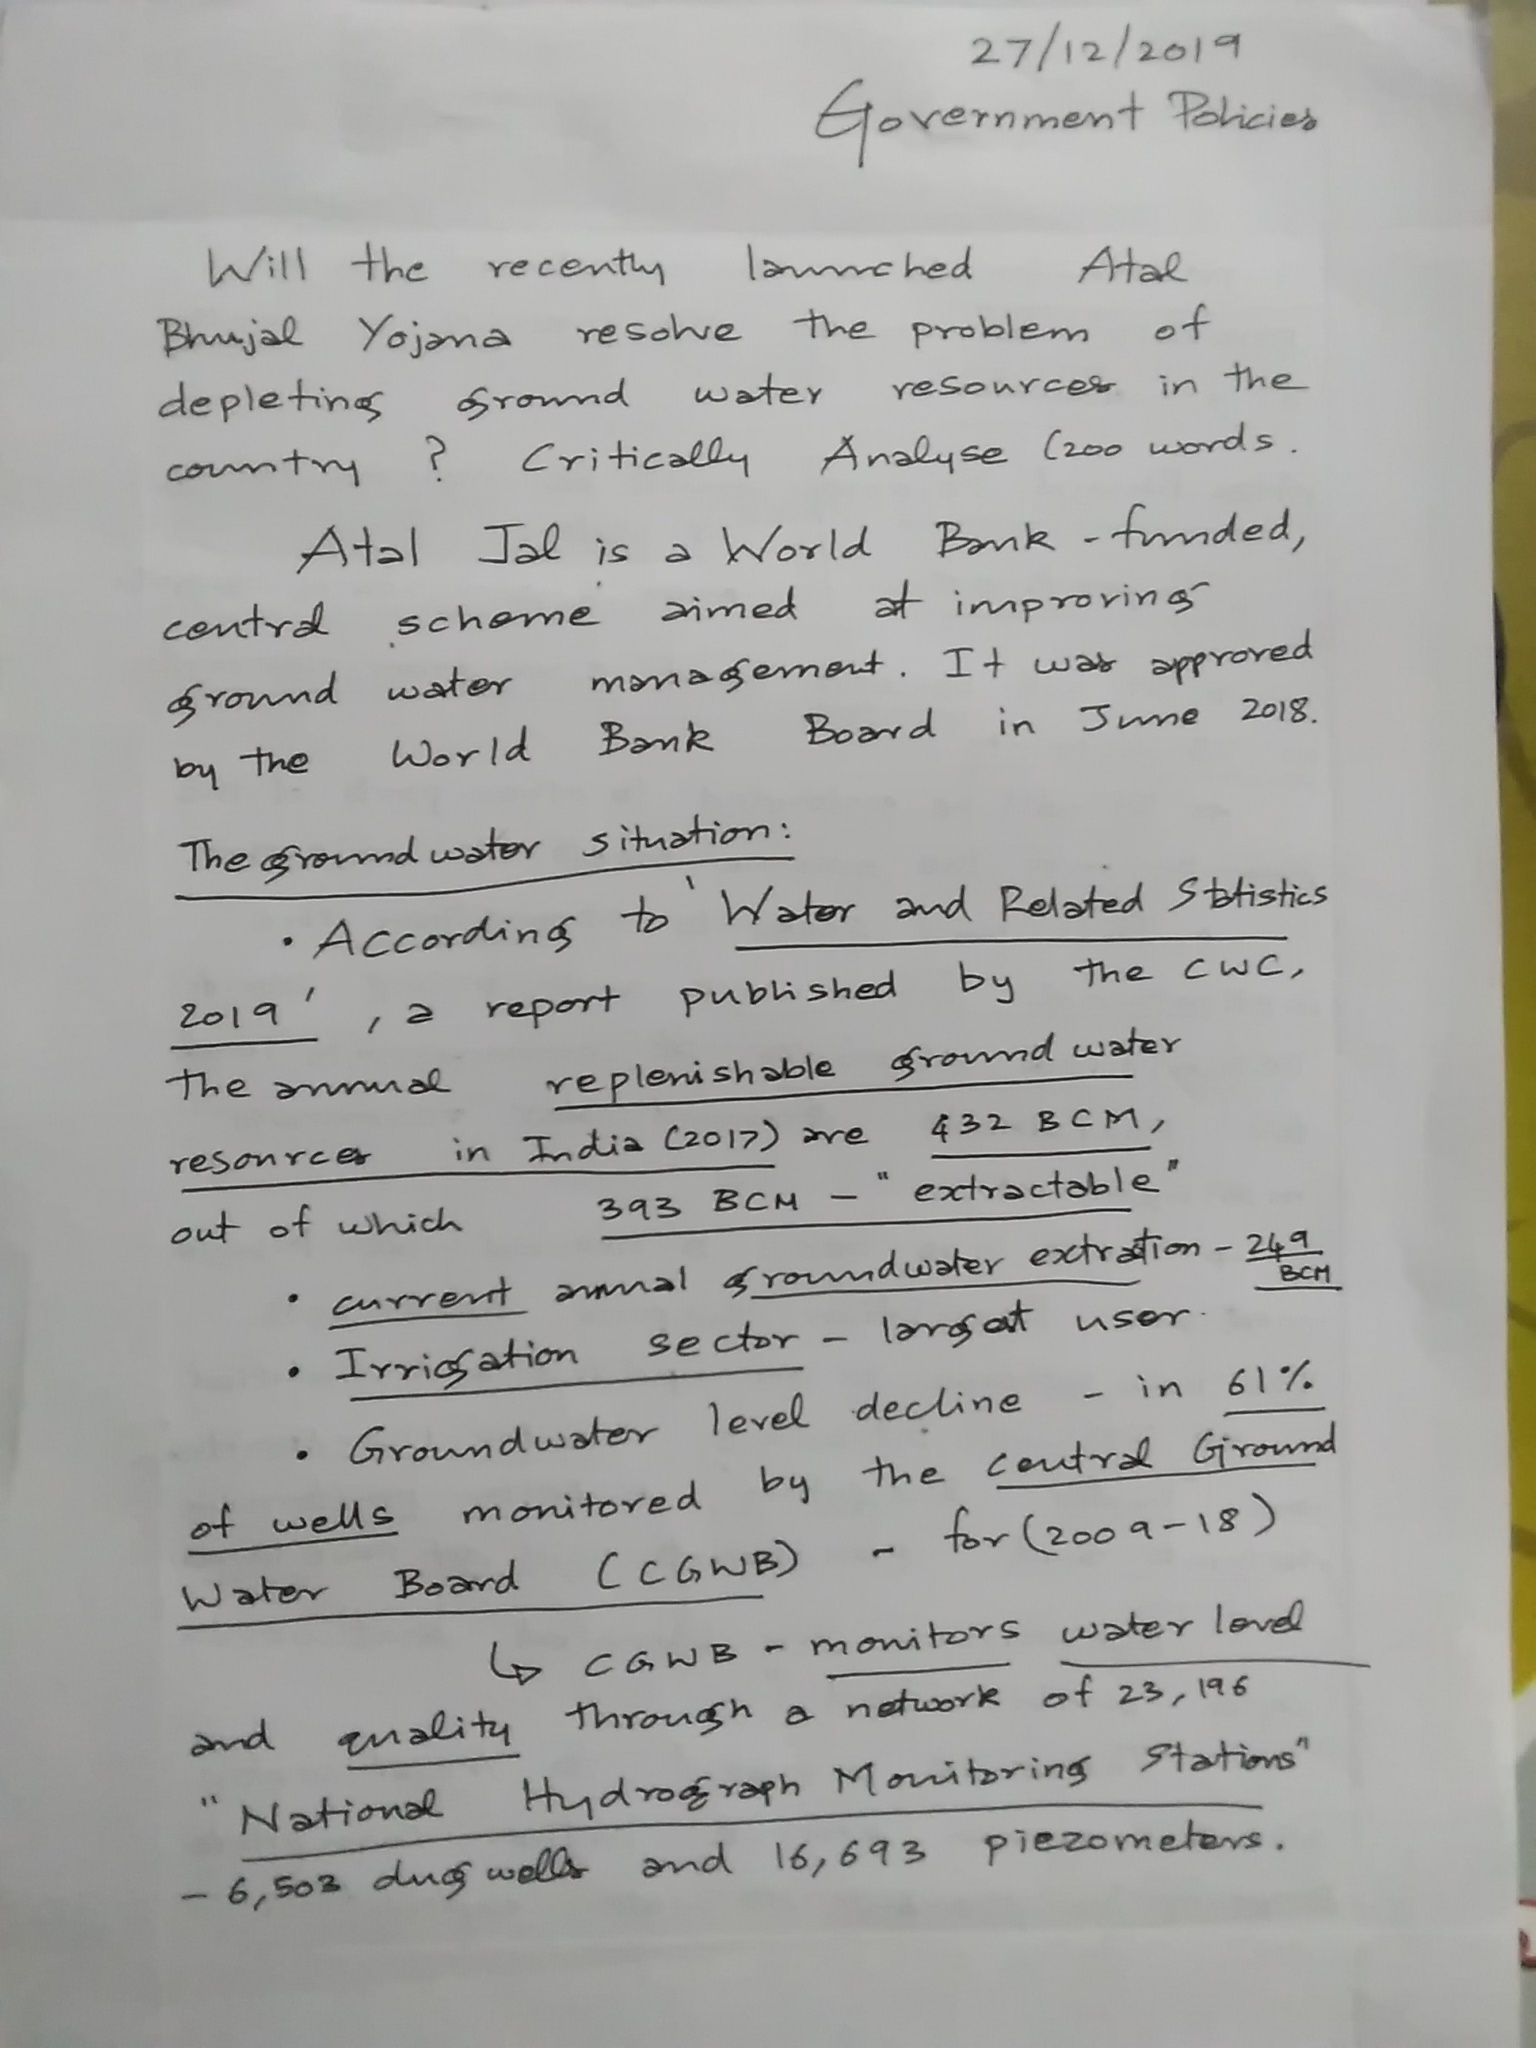 27/12/2019
Government Policies
Will the recently launched Atal
Bhujal Yojana resolve the problem of
depleting ground water resources in the
country ? Critically Analyse (200 words.
Atal Jal is a World Bank - funded,
central scheme aimed at improving
ground water management. It was approved
by the World Bank Board in June 2018.
The ground water situation:
• According to 'Water and Related Statistics
2019', a report published by the CWC,
the annual replenishable ground water
resources in India (2017) are 432 BCM,
out of which 393 BCM - "extractable"
• current annual groundwater extration - 249
BCM
• Irrigation sector - largest user.
• Groundwater level decline - in 61%
of wells monitored by the Central Ground
Water Board (CGWB) - for (2009-18)
↳ CGWB - monitors water level
and quality through a network of 23,196
"National Hydrograph Monitoring Stations"
- 6,503 dug wells and 16,693 piezometers.